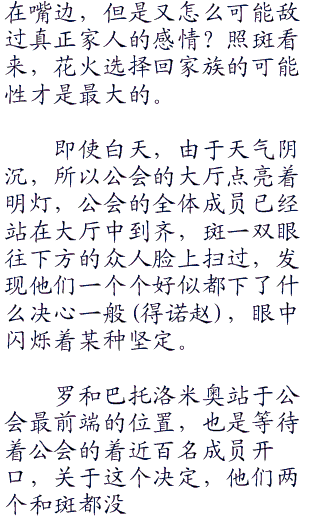 在嘴边，但是又怎么可能敌
过真正家人的感情？照斑看
来，花火选择回家族的可能
性才是最大的。
即使白天，由于天气阴
沉，所以公会的大厅点亮着
明灯，公会的全体成员已经
站在大厅中到齐，斑一双眼
往下方的众人脸上扫过，发
现他们一个个好似都下了什
么决心一般(得诺赵)，眼中
闪烁着某种坚定。
罗和巴托洛米奥站于公
会最前端的位置，也是等待
着公会的着近百名成员开
口，关于这个决定，他们两
个和斑都没